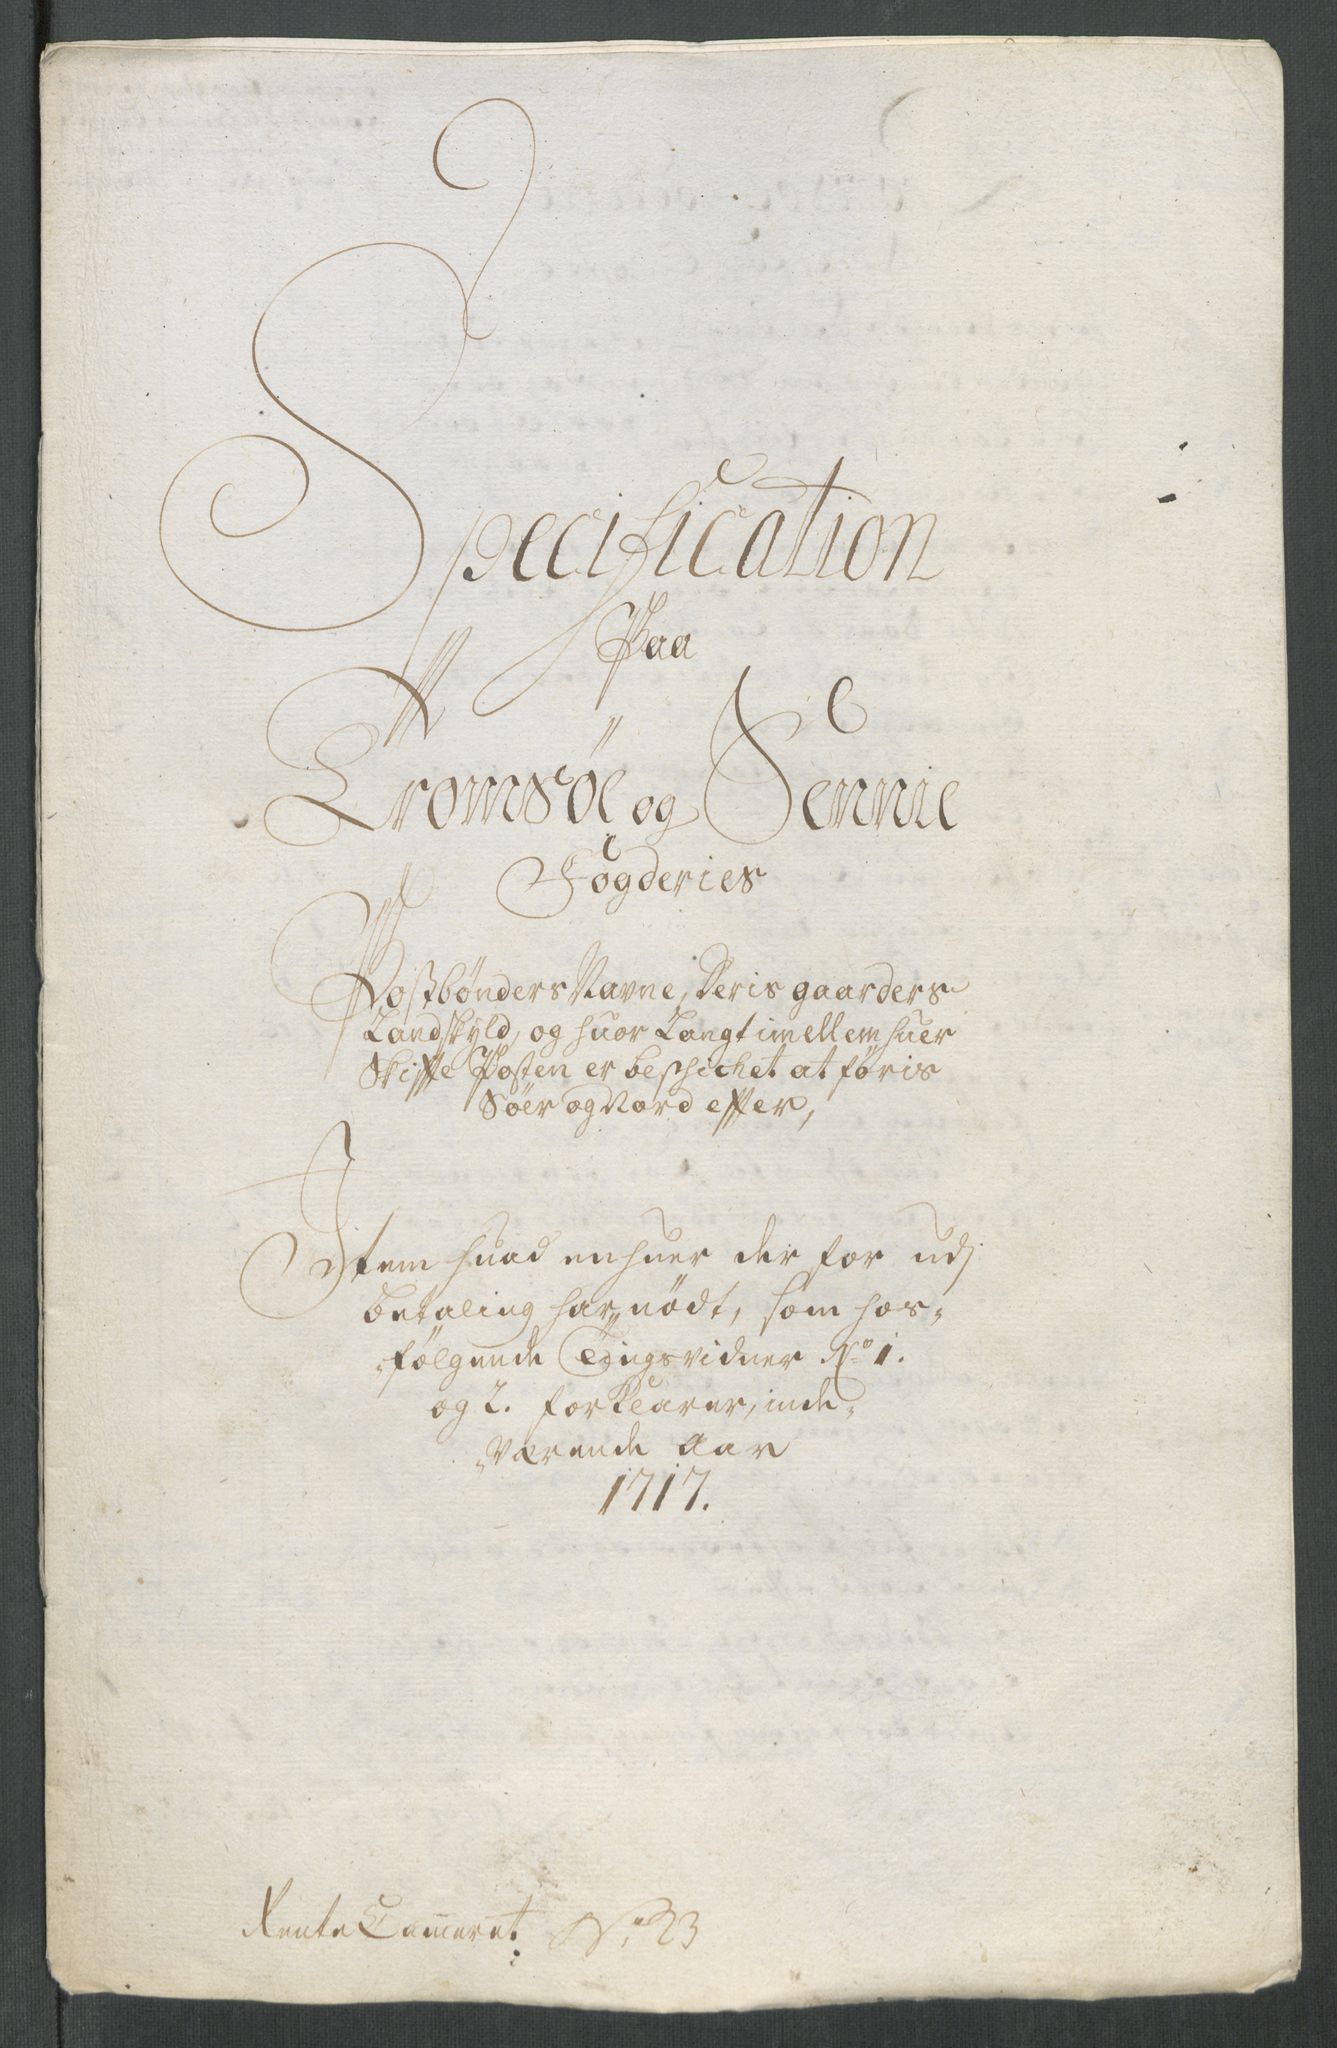 Specification
Paa
Tromsøe og Sennie
Fogderies
Postbønders Navne, Deris gaarders
Landskyld, og huor Langt imellem huer
Skiffte Posten er beschichet at føris
Søer og Nord effter,
Item huad en huer der for udj
betaling har nødt, som hos-
følgende Tingsvidner No 1.
og 2. forklarer, inde-
værende Aar
1717.
Rente Cammeret No 23